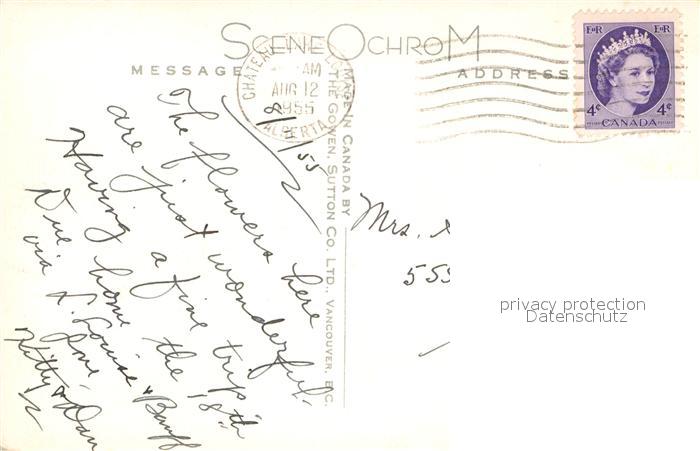 SCENEOCHROM
MESSAGE
ADDRESS
E II R E II R
4¢ 4¢
CANADA
POSTES POSTAGE
CHATEAU
AM
AUG 12
1955
ALBERTA
MADE IN CANADA BY
THE GOWEN, SUTTON CO. LTD., VANCOUVER, B.C.
8/11/55
The flowers here
are just wonderful.
Having a fine trip
Due home the 18th
via L. Louise & Banff
Love
Kitty & Dan
Mrs.
555
privacy protection
Datenschutz